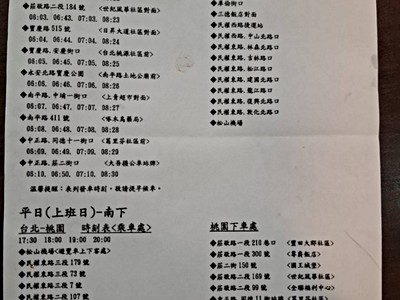 ◆莊敬路二段 184 號 <世紀凱華社區對面>
06:03、06:43、07:03、08:23
◆寶慶路 515 號 <日昇大道社區對面>
06:04、06:44、07:04、08:24
◆寶慶路、安慶街口 <台北桃源社區前>
06:05、06:45、07:05、08:25
◆永安北路寶慶公園 <南平路上地公廟前>
06:06、06:46、07:06、08:26
◆南平路、中埔一街口 <上青超市對面>
06:07、06:47、07:07、08:27
◆南平路 411 號 <啄木鳥藥局>
06:08、06:48、07:08、08:28
◆中正路、同德十一街口 <萬里芬社區前>
06:09、06:49、07:09、08:29
◆中正路、莊二街口 <大善糧公車站牌>
06:10、06:50、07:10、08:30
溫馨提醒：表列發車時刻，敬請提千候車。
◆庫倫街口
◆三德飯店對面
◆民權西路捷運站
◆民權西路、中山北路口
◆民權東路、林森北路口
◆民權東路、吉林路口
◆民權東路、松江路口
◆民權東路、建國北路口
◆民權東路、龍江路口
◆民權東路、復興北路口
◆民權東路、敦化北路口
◆松山機場
平日(上班日)-南下
台北-桃園 時刻表<乘車處>
17:30 18:00 19:00 20:00
◆松山機場<遊覽車上下客處>
◆民權東路三段 179 號
◆民權東路三段 73 號
◆民權東路二段 7 號
◆民權東路二段 107 號
桃園下車處
◆莊敬路一段 210 巷口 <豐田大郡社區>
◆莊敬路一段 300 號 <尊爵飯店>
◆莊二街 150 號 <國王城堡>
◆莊敬路二段 169 號 <世紀凱華社區>
◆莊敬路二段 99 號 <全聯福利中心>